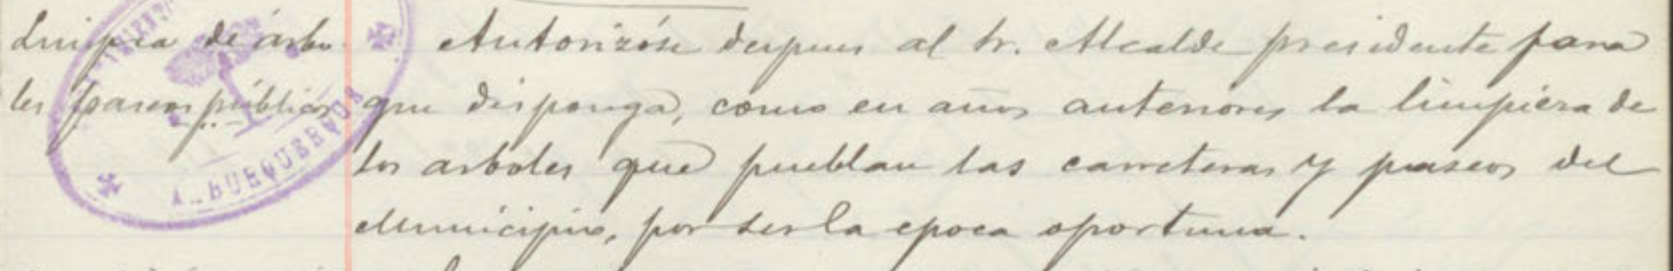 Limpieza de árbo-
les paseos públicos
Autorizóse despues al Sr. Alcalde presidente para
que disponga, como en años anteriores la limpieza de
los arboles que pueblan las carreteras y paseos del
Municipio, por ser la epoca oportuna.
ALBURQUERQUE